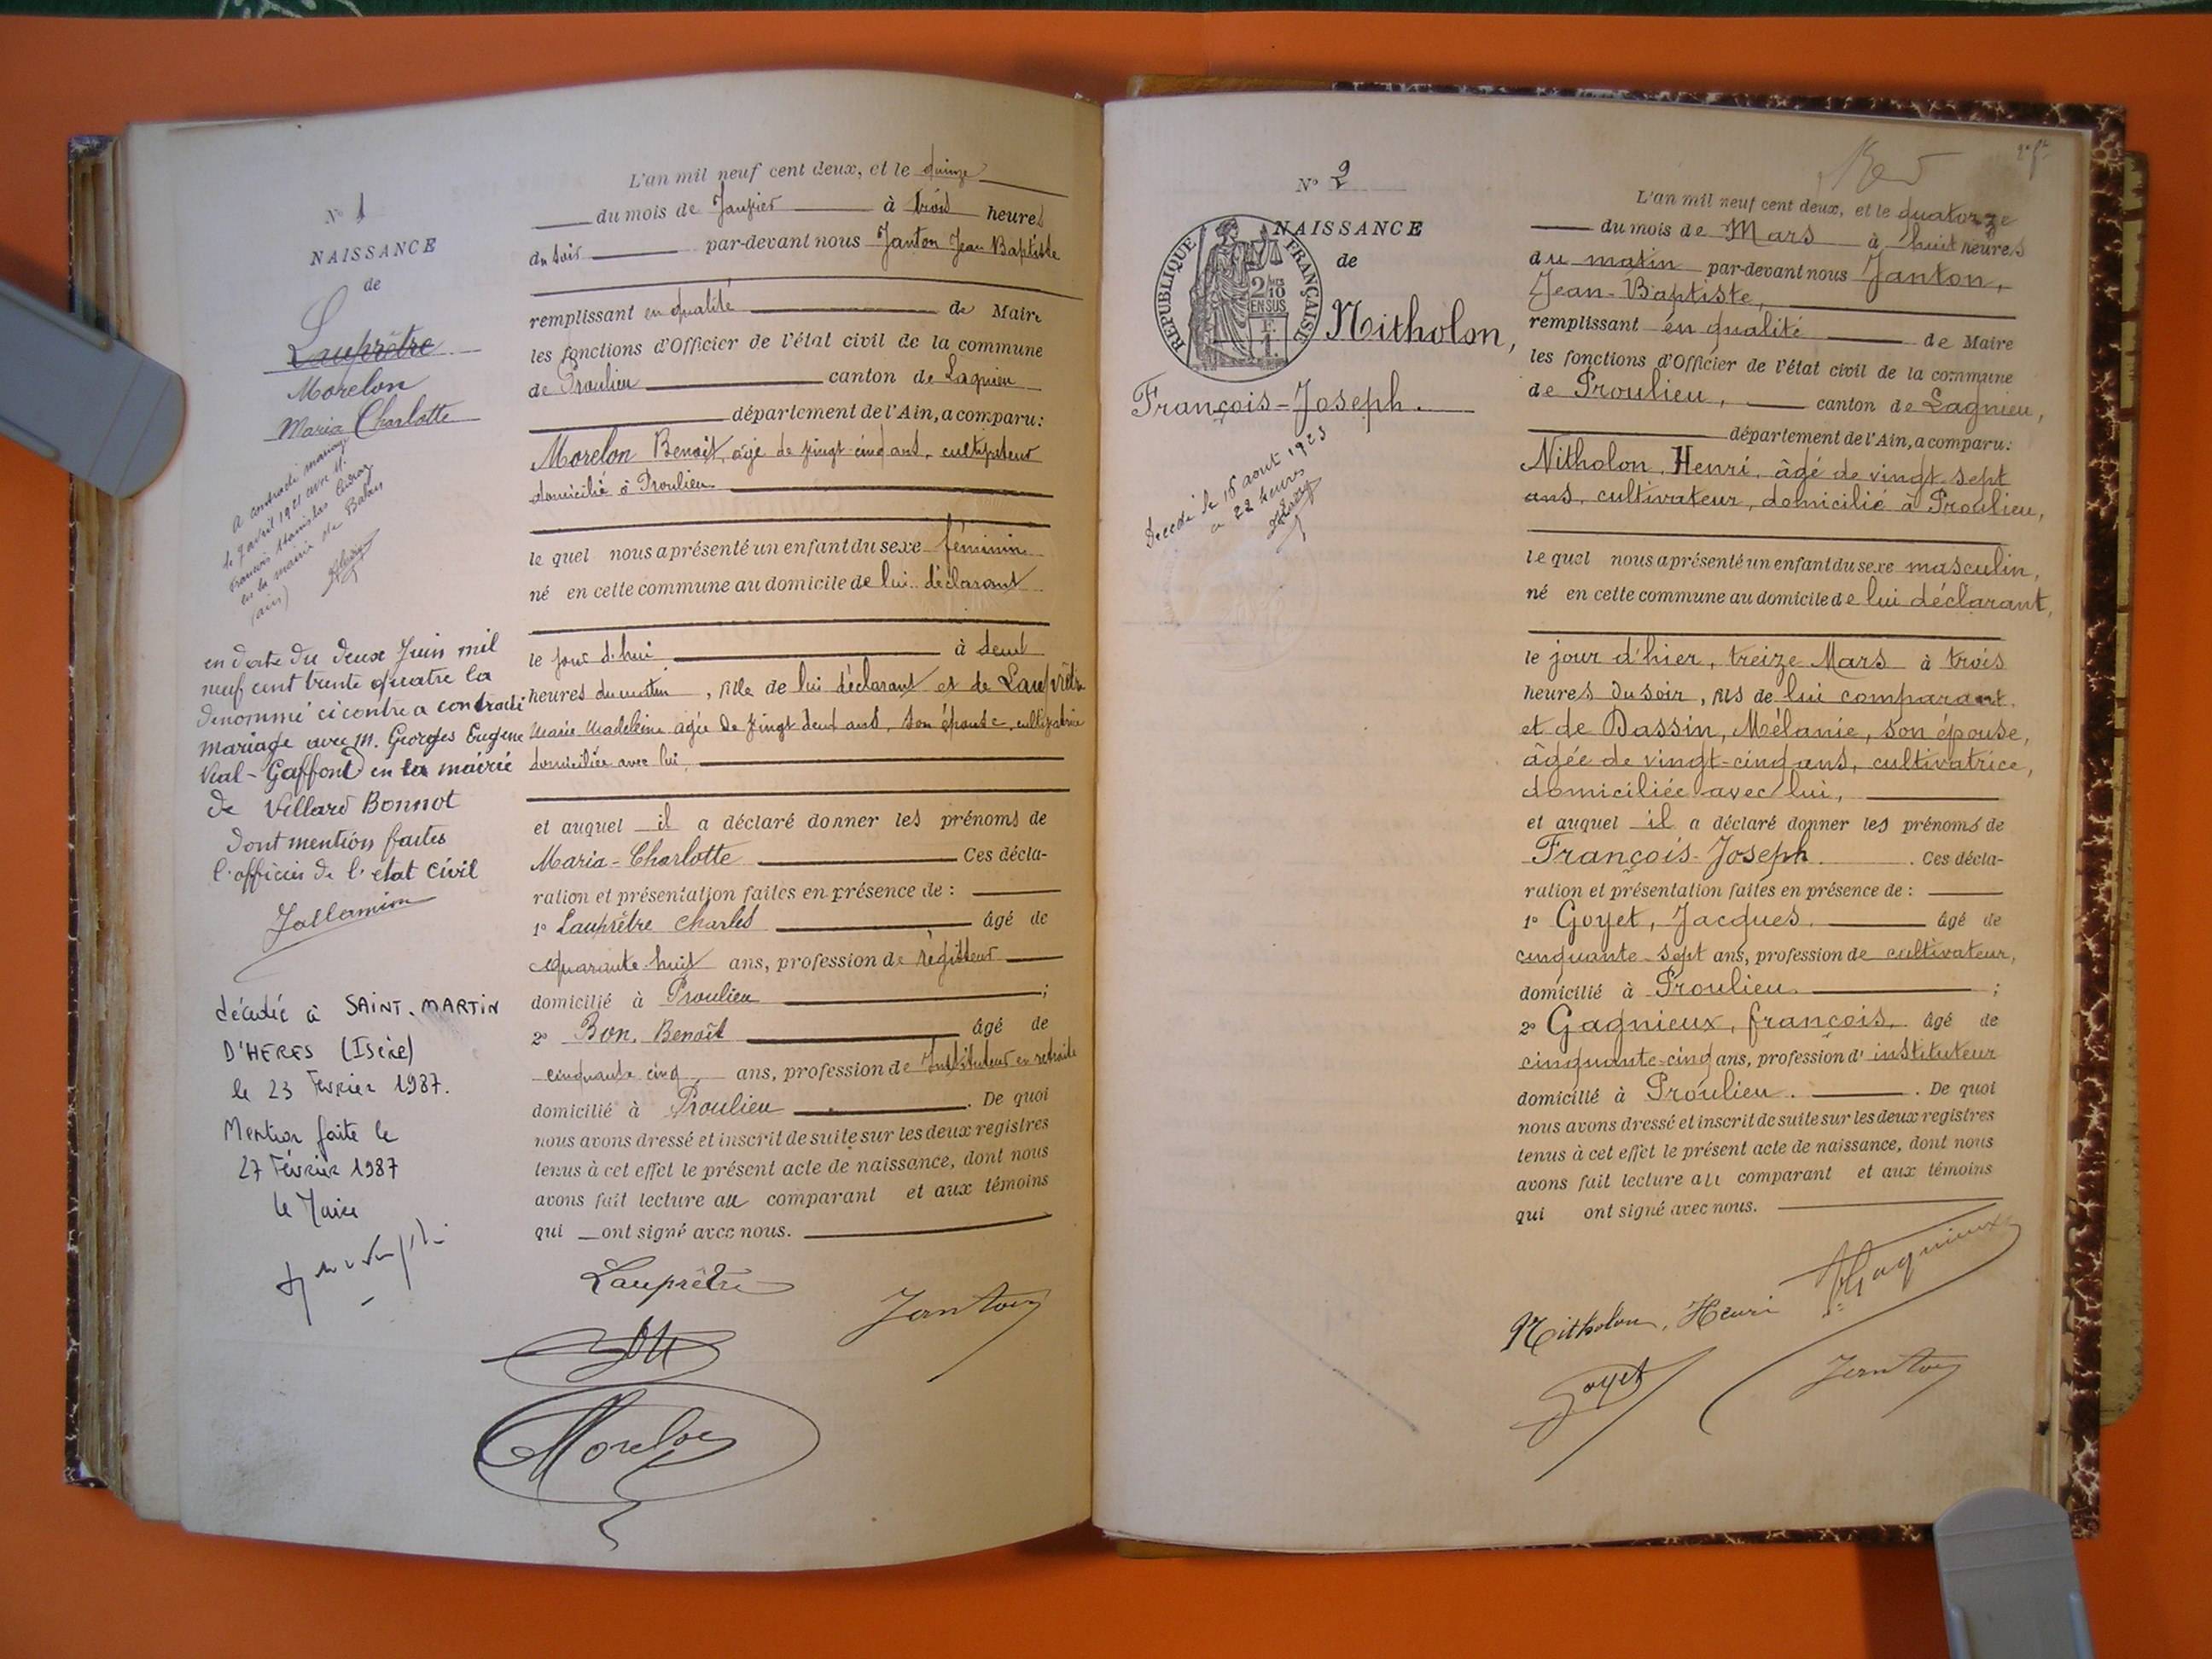 N° 1
NAISSANCE
de
Lauprêtre
Morelon
Maria Charlotte
a contracté mariage
le 7 avril 1921 avec M.
François Stanislas
en la mairie de Balan
(ain)
en date du deux Juin mil
neuf cent trente quatre la
denommé ci contre a contracté
mariage avec M. Georges Eugène
Vial-Gaffont en la mairie
de Villard Bonnot
dont mention faites
l'officier de l'etat civil
Jallamion
décédée à SAINT.MARTIN
D'HERES (Isère)
le 23 Février 1987.
Mention faite le
27 Février 1987
le Maire
L'an mil neuf cent deux, et le quinze
du mois de Janvier à trois heures
du soir par-devant nous Janton Jean Baptiste
remplissant en qualité de Maire
les fonctions d'Officier de l'état civil de la commune
de Proulieu canton de Lagnieu
département de l'Ain, a comparu:
Morelon Benoit, âgé de vingt cinq ans, cultivateur
domicilié à Proulieu
le quel nous a présenté un enfant du sexe féminin
né en cette commune au domicile de lui déclarant
le jour d'hui à deux
heures du matin, fille de lui déclarant et de Lauprêtre
Marie Madeleine agée de vingt deux ans, son épouse, cultivatrice
domiciliée avec lui,
et auquel il a déclaré donner les prénoms de
Maria-Charlotte Ces décla-
ration et présentation faites en présence de :
1° Lauprêtre Charles âgé de
quarante-huit ans, profession de régisseur
domicilié à Proulieu ;
2° Bon, Benoît âgé de
cinquante cinq, ans, profession de Instituteur en retraite
domicilié à Proulieu . De quoi
nous avons dressé et inscrit de suite sur les deux registres
tenus à cet effet le présent acte de naissance, dont nous
avons fait lecture au comparant et aux témoins
qui ont signé avec nous.
Lauprêtre
Janton
Bon
Morelon
N° 2
NAISSANCE
de
REPUBLIQUE FRANÇAISE
2/10
EN SUS
Nitholon,
François-Joseph.
Decedé le 16 aout 1923
a 22 heures
L'an mil neuf cent deux, et le quatorze
du mois de Mars à huit heures
du matin par-devant nous Janton,
Jean-Baptiste,
remplissant en qualité de Maire
les fonctions d'Officier de l'état civil de la commune
de Proulieu, canton de Lagnieu,
département de l'Ain, a comparu:
Nitholon, Henri, âgé de vingt-sept
ans, cultivateur, domicilié à Proulieu,
le quel nous a présenté un enfant du sexe masculin,
né en cette commune au domicile de lui déclarant,
le jour d'hier, treize Mars à trois
heures du soir, fils de lui comparant,
et de Dassin, Mélanie, son épouse,
âgée de vingt-cinq ans, cultivatrice,
domiciliée avec lui,
et auquel il a déclaré donner les prénoms de
François-Joseph . Ces décla-
ration et présentation faites en présence de :
1° Goyet, Jacques. âgé de
cinquante-sept ans, profession de cultivateur,
domicilié à Proulieu. ;
2° Gagnieux, françois, âgé de
cinquante-cinq ans, profession d'instituteur
domicilié à Proulieu. . De quoi
nous avons dressé et inscrit de suite sur les deux registres
tenus à cet effet le présent acte de naissance, dont nous
avons fait lecture au comparant et aux témoins
qui ont signé avec nous.
Gagnieux
Nitholon, Henri
Goyet
Janton